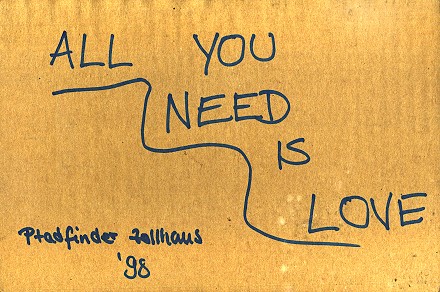 ALL YOU
NEED
IS
LOVE
Pfadfinder Zollhaus
'98